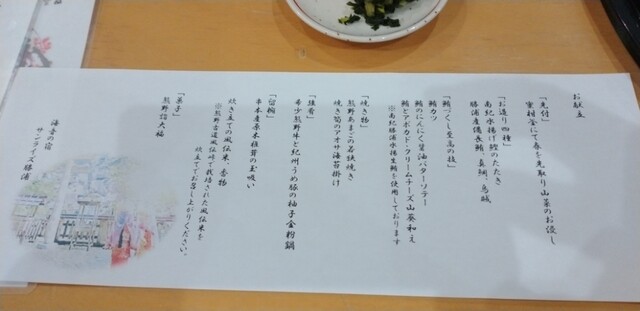 お献立
「先付」
蜜柑釜にて春を先取り山菜のお浸し
「お造り四種」
南紀水揚げ鰹のたたき
勝浦産備長鮪、真鯛、烏賊
「鮪づくし至高の技」
鮪カツ
鮪のにんにく醤油バターソテー
鮪とアボカド・クリームチーズ山葵和え
※南紀勝浦水揚生鮪を使用しております
「焼き物」
熊野あまごの若狭焼き
焼き筍のアオサ海苔掛け
「強肴」
希少熊野牛と紀州うめ豚の柚子金粉鍋
「留椀」
串本産原木椎茸の玉吸い
炊き立ての風伝米・香物
※熊野古道風伝峠で栽培された風伝米を
炊立てでお召し上がりください。
「菓子」
熊野詣大福
海舎の宿
サンライズ勝浦